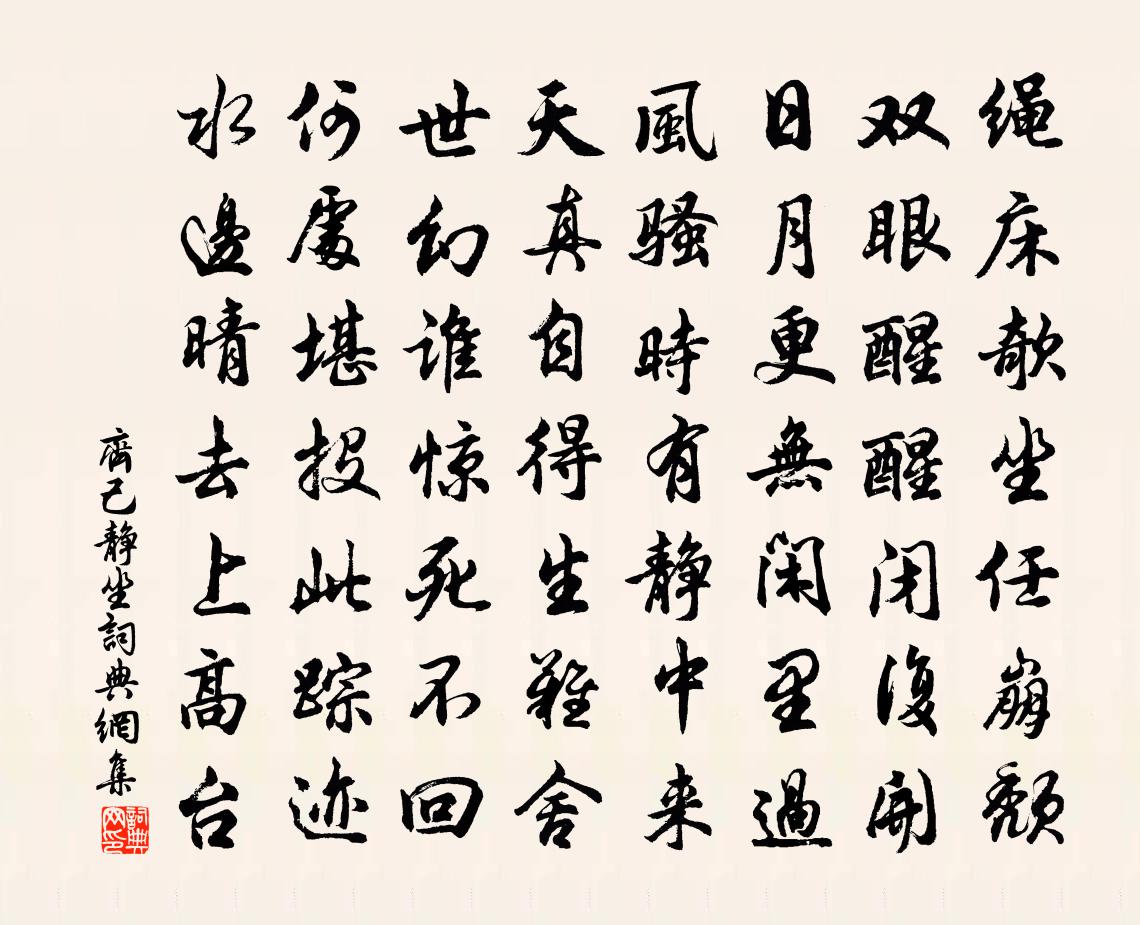 绳床欹坐任崩颓
双眼醒醒闭復開
日月更無閑里過
風骚時有静中来
天真自得生難舍
世幻谁惊死不回
何處堪投此踪迹
水邊晴去上高台
齊己静坐詞典網集
詞典网印